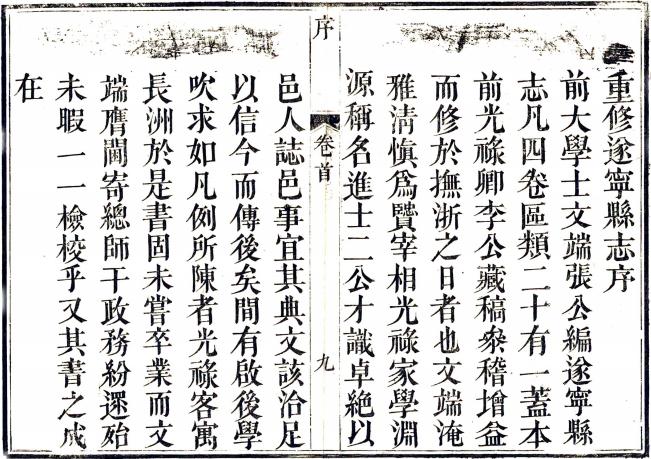 重修遂寧縣志序
前大學士文端張公編遂寧縣
志凡四卷區類二十有一蓋本
前光祿卿李公藏稿叅稽增益
而修於撫浙之日者也文端淹
雅淸愼爲贒宰相光祿家學淵
源稱名進士二公才識卓絶以
序
卷首
九
邑人誌邑事宜其典文該洽足
以信今而傳後矣間有啟後學
吹求如凡例所陳者光祿客寓
長洲於是書固未嘗卒業而文
端膺閫寄總師干政務紛遝殆
未暇一一檢校乎又其書之成
在